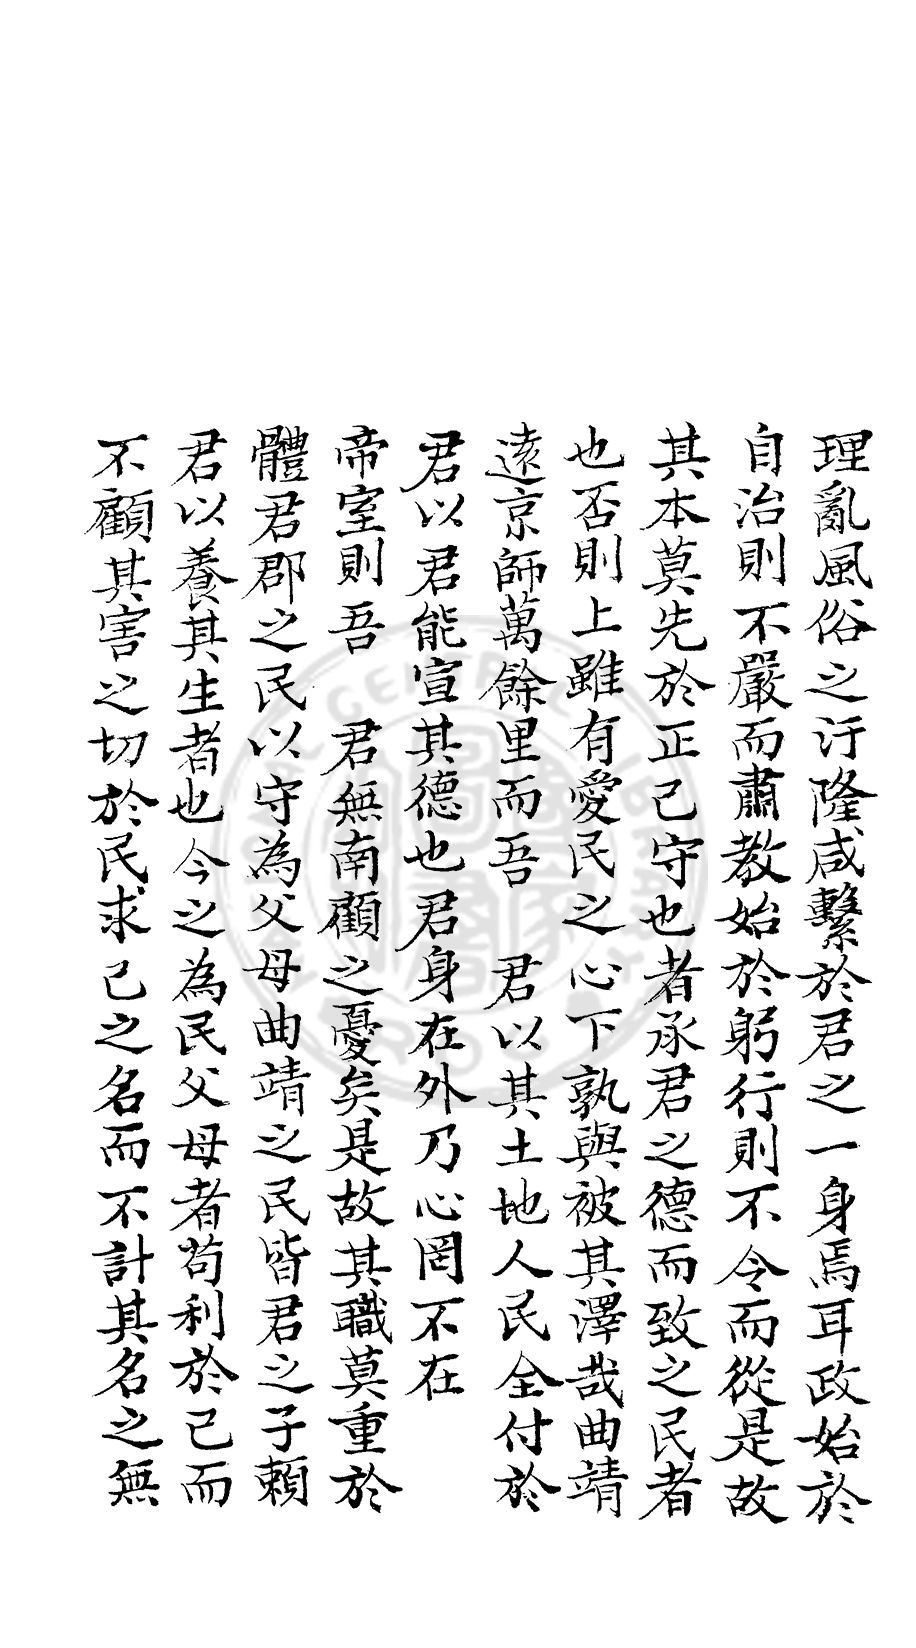 理亂風俗之汙隆咸繫於君之一身焉耳政始於
自治則不嚴而肅教始於躬行則不令而從是故
其本莫先於正己守也者承君之德而致之民者
也否則上雖有愛民之心下孰與被其澤哉曲靖
遠京師萬餘里而吾 君以其土地人民全付於
君以君能宣其德也君身在外乃心罔不在
帝室則吾 君無南顧之憂矣是故其職莫重於
體君郡之民以守為父母曲靖之民皆君之子賴
君以養其生者也今之為民父母者苟利於己而
不顧其害之切於民求己之名而不計其名之無